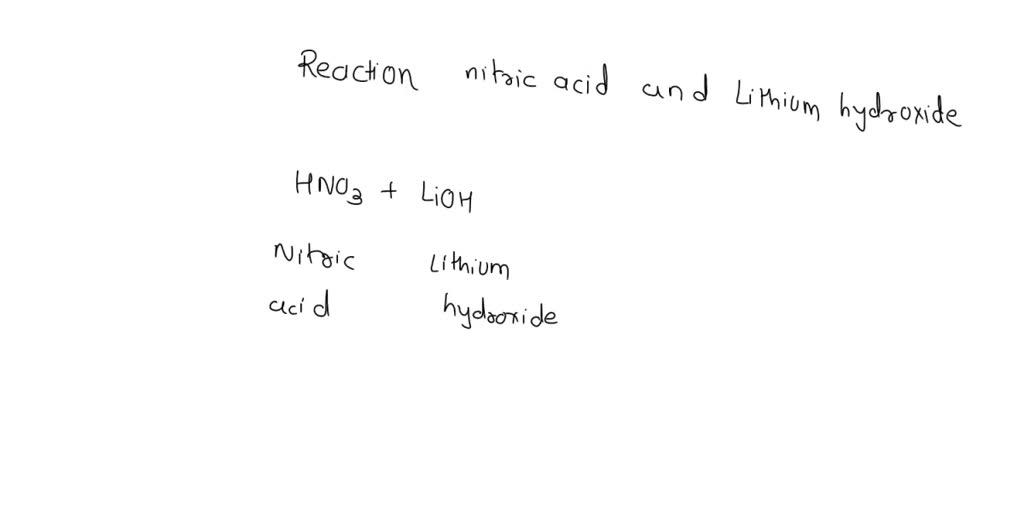 Reaction nitric acid and Lithium hydroxide
HNO₃ + LiOH
Nitric Lithium
acid hydroxide